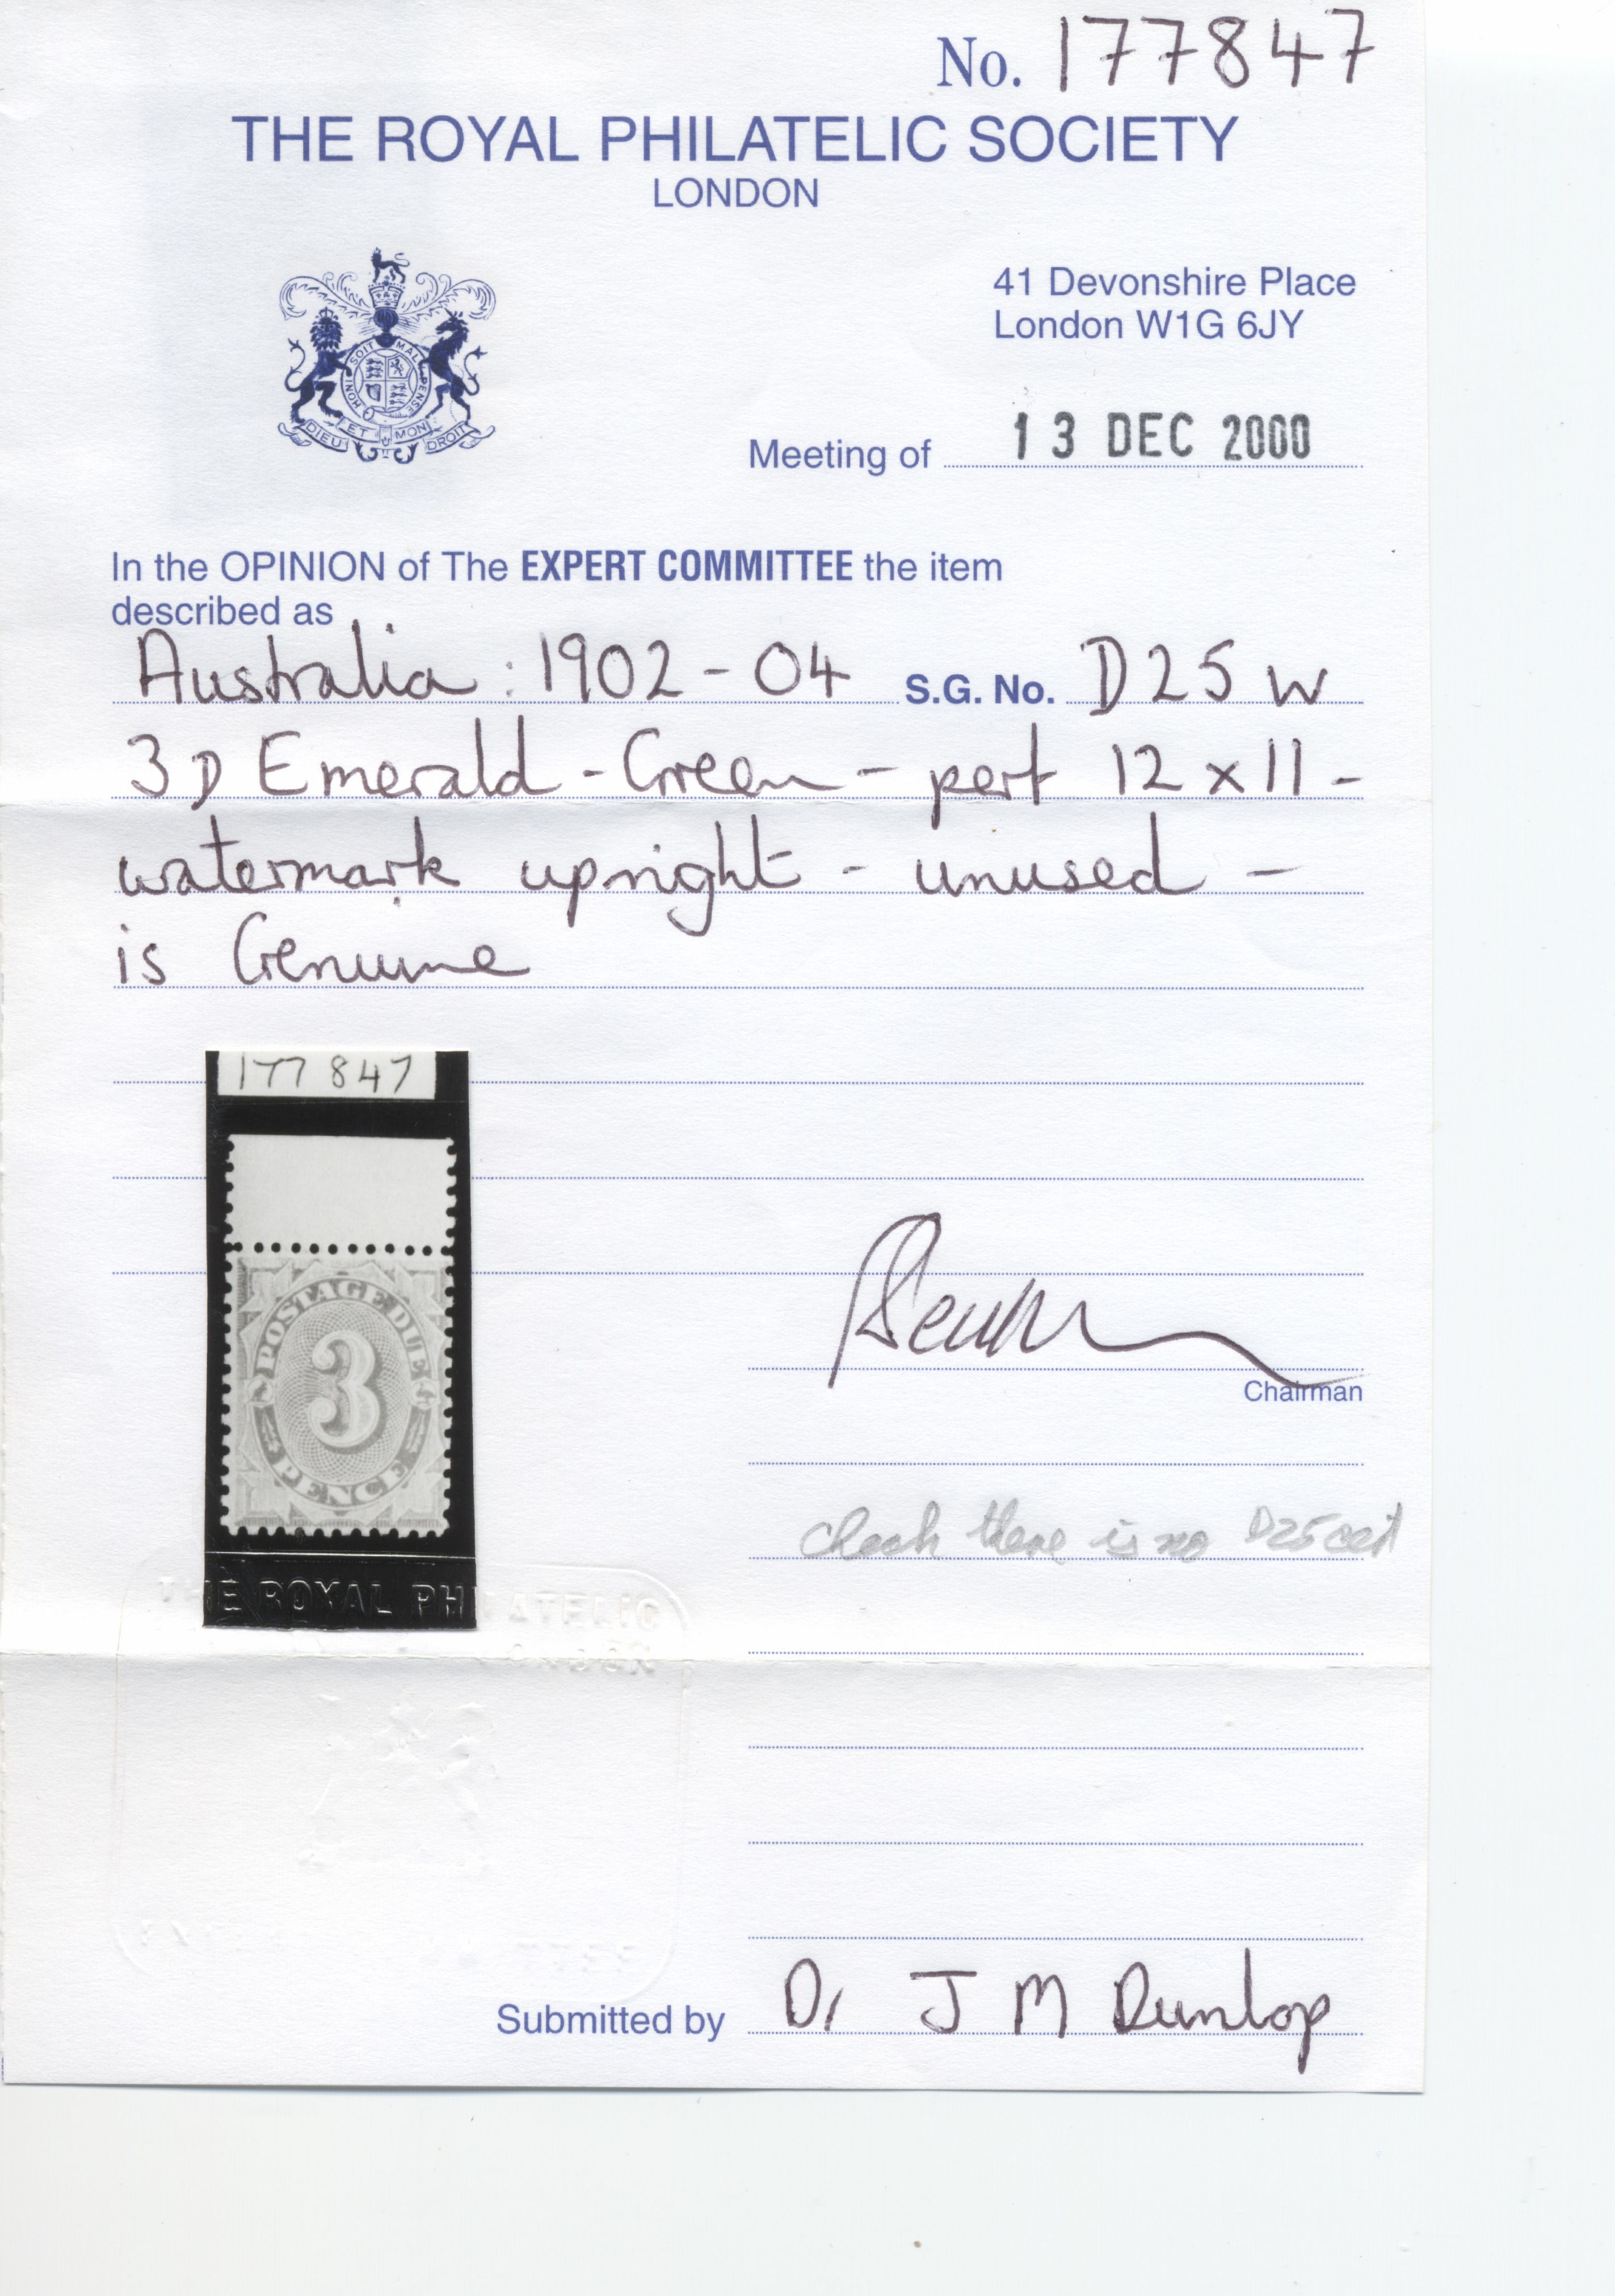 No. 177847
THE ROYAL PHILATELIC SOCIETY
LONDON
41 Devonshire Place
London W1G 6JY
HONI SOIT MAL PENSE
DIEU ET MON DROIT
Meeting of 13 DEC 2000
In the OPINION of The EXPERT COMMITTEE the item
described as
Australia : 1902 - 04 S.G. No. D25 w
3D Emerald - Green - perf 12 x 11 -
watermark upright - unused -
is Genuine
177847
POSTAGE DUE
3
PENCE
Chairman
Check there is no D25 cert
THE ROYAL PHILATELIC
Submitted by Dr J M Dunlop